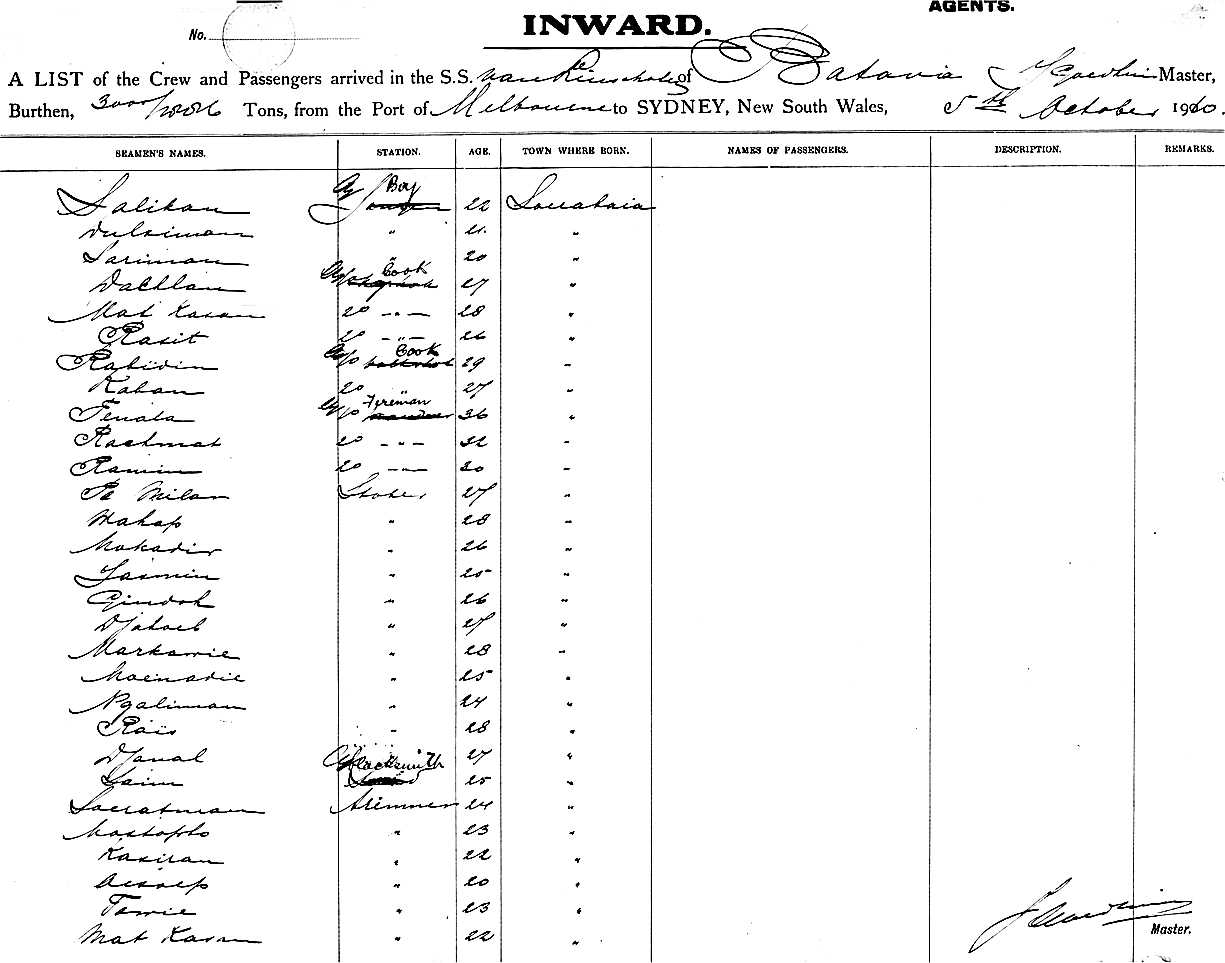 AGENTS.
No.
INWARD.
A LIST of the Crew and Passengers arrived in the S.S. of Batavia Master,
Burthen, Tons, from the Port of Melbourne to SYDNEY, New South Wales, 5th October 1910.
SEAMEN'S NAMES. STATION. AGE. TOWN WHERE BORN. NAMES OF PASSENGERS. DESCRIPTION. REMARKS.
Boy
Salikan 22 Soerabaia
" 21 "
Sariman " 20 "
Cook
Dachlan 27 "
Mat Kasan 20 - " - 28 "
Rasit 20 - " - 26 "
Cook
Rabidin 29 "
Kaban 20 " 27 "
Fireman
Tenala 36 "
Rachmat 20 - " - 32 "
Ramin 20 - " - 30 "
Pa Milan Stoker 27 "
Wahap " 28 "
Mokadir " 26 "
Jasmin " 25 "
Gindok " 26 "
" 27 "
Markawie " 28 "
Moenadie " 25 "
Ngaliman " 24 "
Rais " 28 "
Djanal Blacksmith 27 "
Saim 25 "
Soeratman Trimmer 24 "
Mostopho " 23 "
Kasiran " 22 "
" 20 "
Tamie " 23 "
Mat Kasan " 22 "
Master.